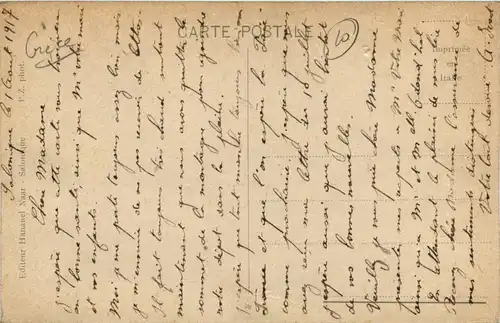 CARTE POSTALE
Grèce
10
Imprimée
en
Italie
Editeur Hananel Naar Salonique P.Z. phot.
Salonique le 1 Août 1917
Chère Madame
J'espère que cette carte vous trouvera
en bonne santé, ainsi que Mr votre mari
et vos enfants.
Moi je me porte toujours assez bien mais
je m'ennuie de ne pas recevoir de lettre
Il fait toujours très chaud surtout
maintenant que nous avons quitté le
sommet de la montagne pour rejoindre
notre dépôt dans la plaine.
J'espère que tout marche toujours bien en
France et que l'on espère la
comme prochaine. J'espère que vous
avez reçu ma lettre du 15 juillet
J'espère aussi que j'aurai bientôt
de vos bonnes nouvelles.
Veuillez je vous prie chère Madame
présenter mes respects à Mr Votre Mari
ainsi qu'à Mr et Mlle
En attendant le plaisir de vous lire
Recevez chère Madame l'assurance de
mes sentiments distingués.
Votre tout dévoué